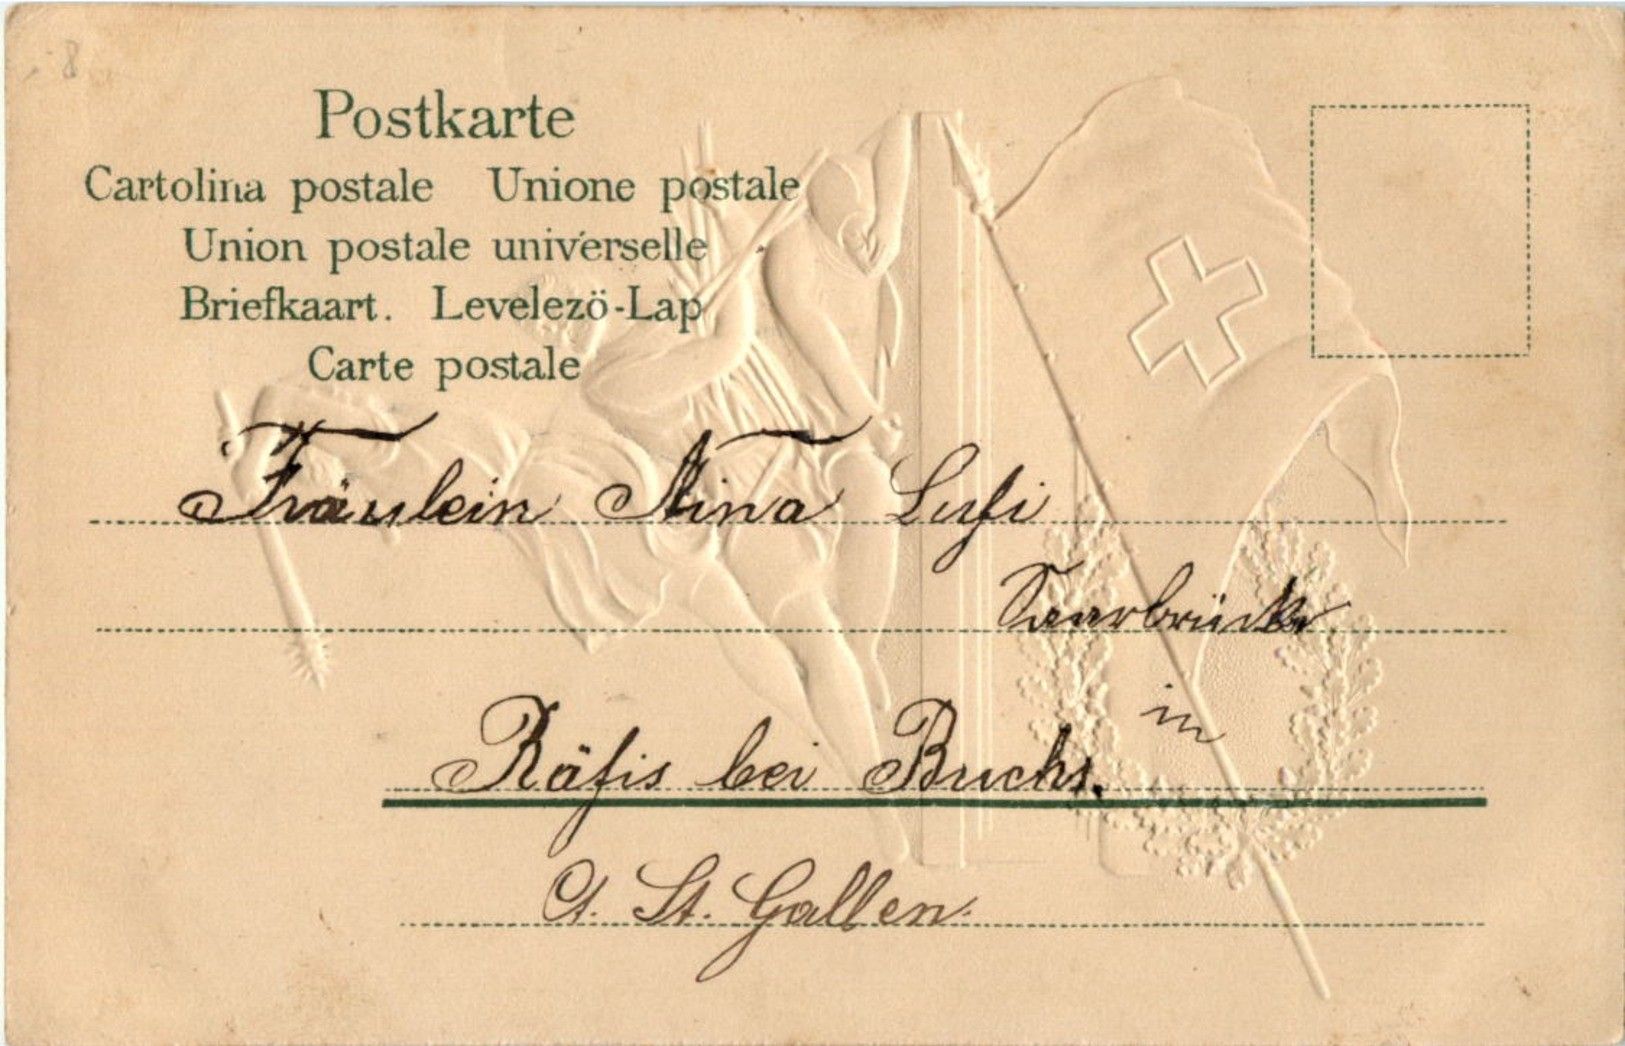 8
Postkarte
Cartolina postale Unione postale
Union postale universelle
Briefkaart. Levelezö-Lap
Carte postale
Fräulein Nina
in
Räfis bei Buchs.
Ct. St. Gallen.